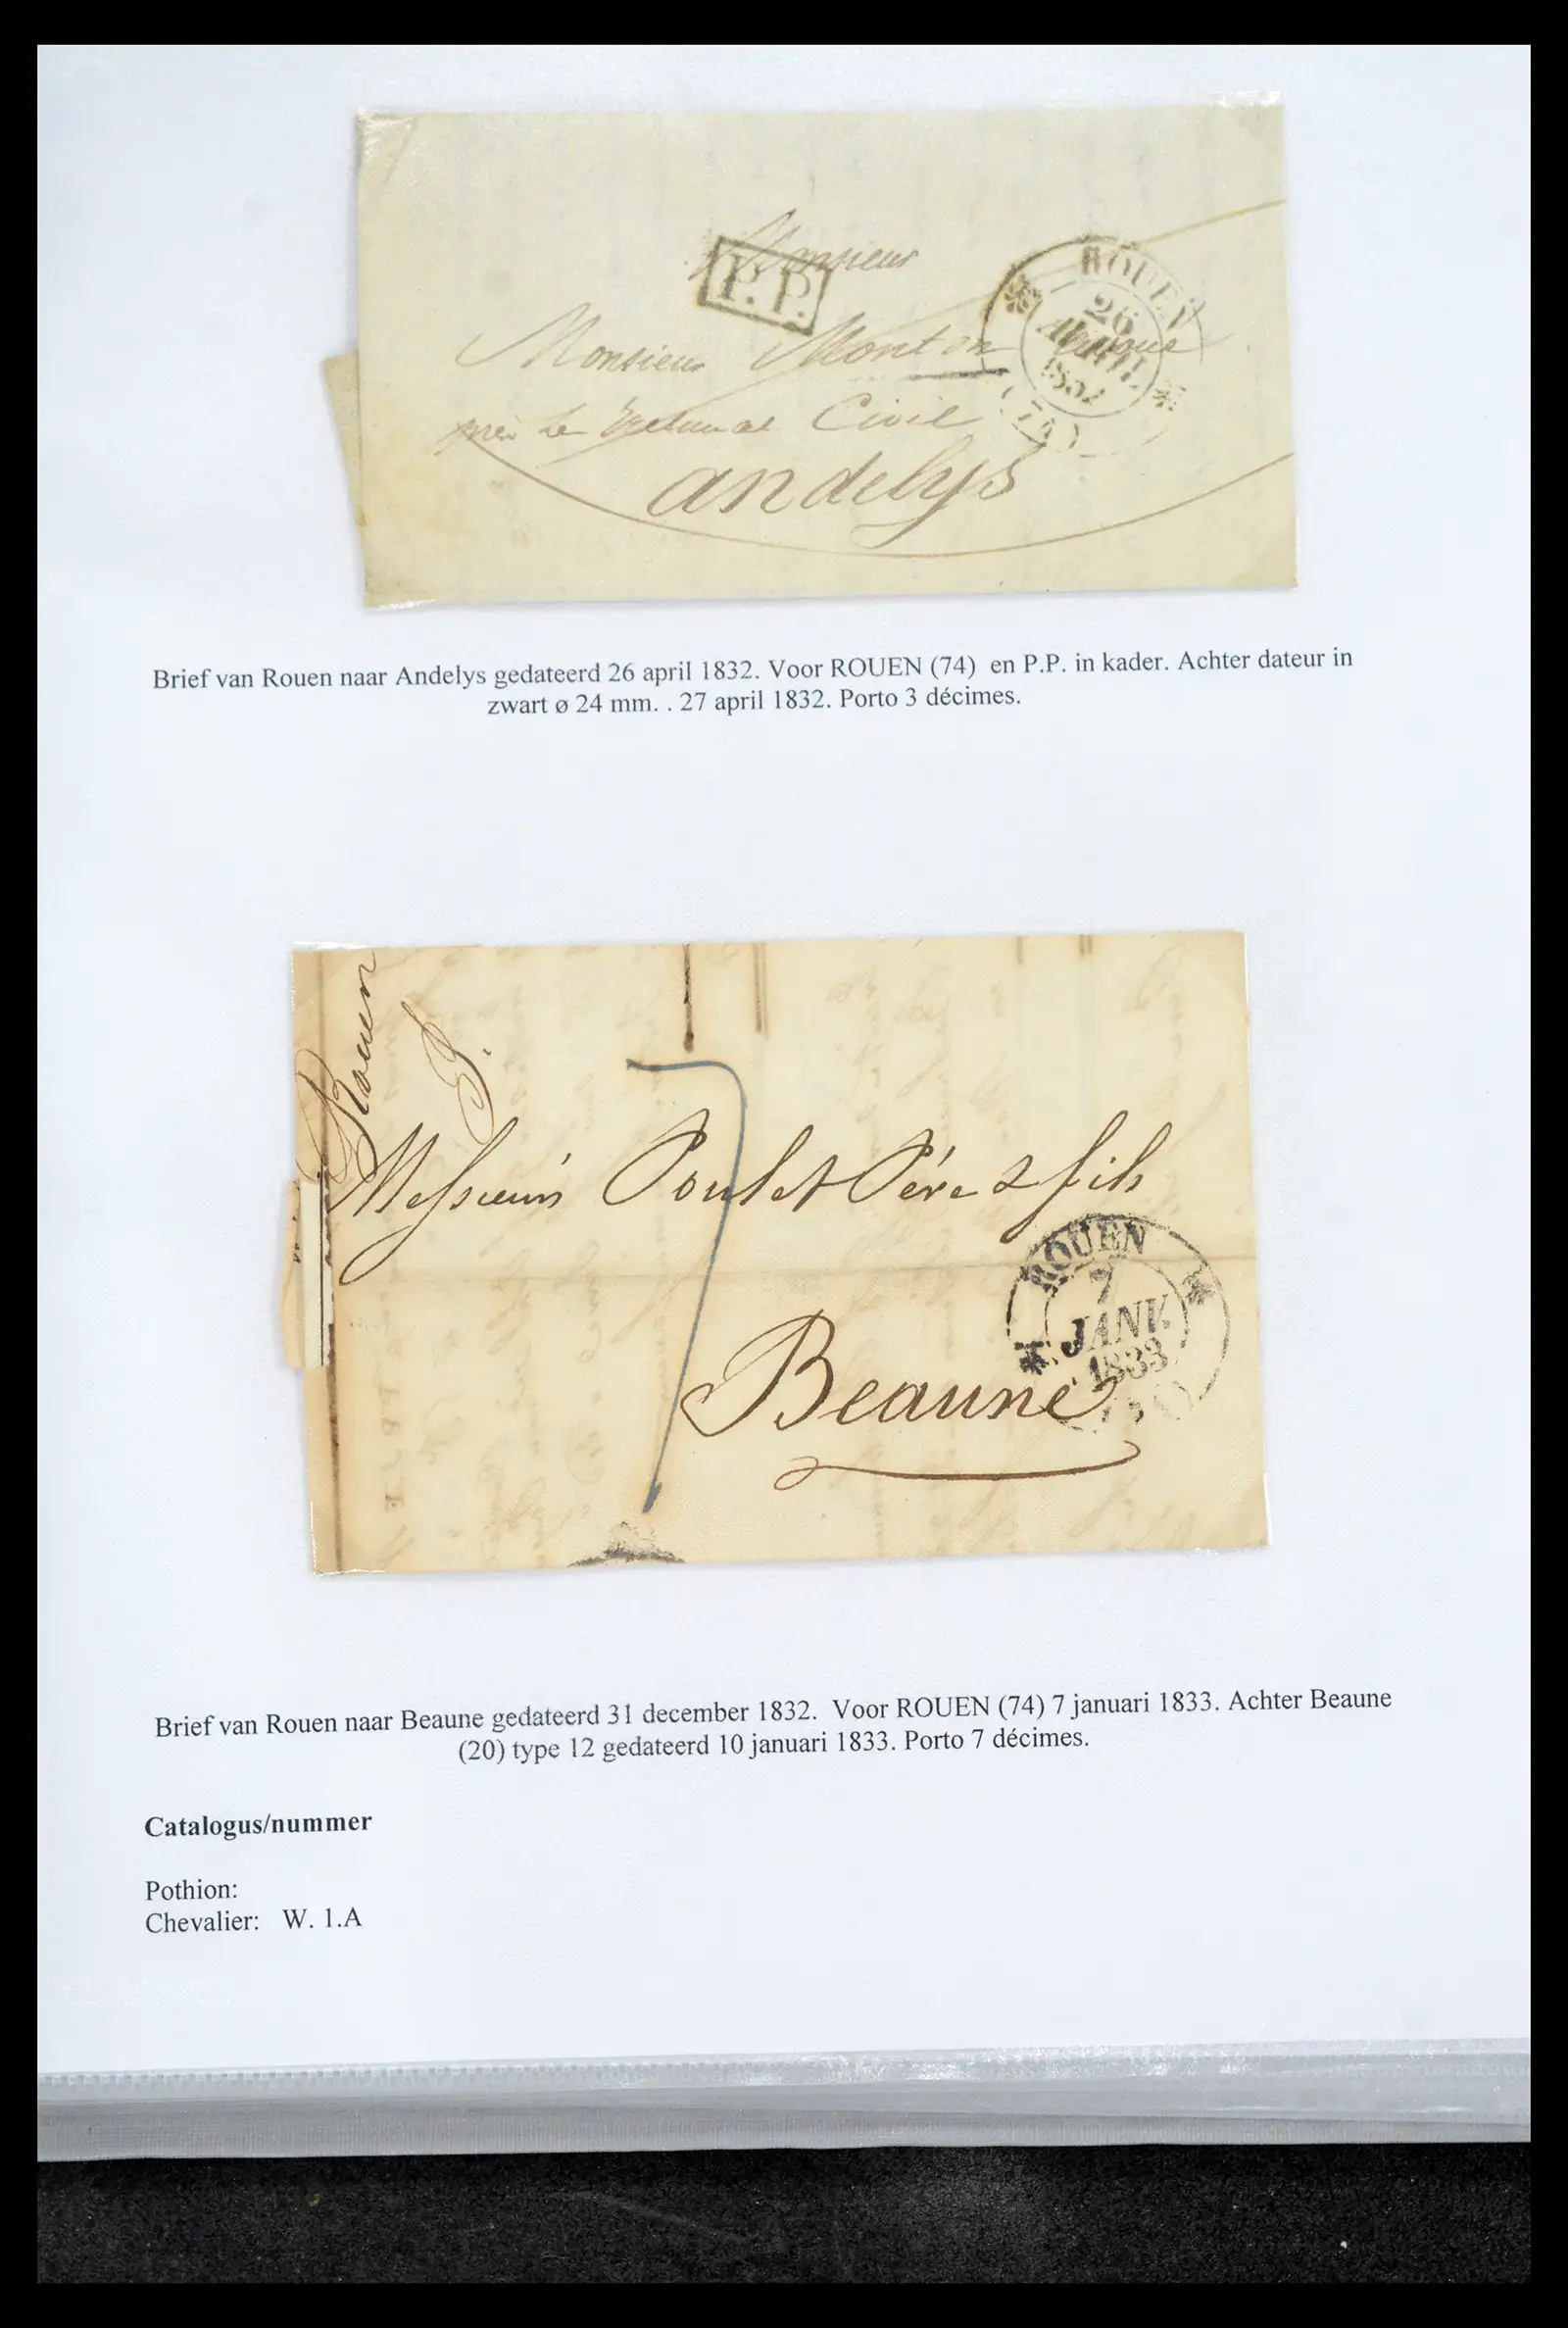 Monsieur
P.P.
Monsieur Monton
près Le Tribunal Civil
andelys
ROUEN
26
AVRIL
1832
(74)
Brief van Rouen naar Andelys gedateerd 26 april 1832. Voor ROUEN (74) en P.P. in kader. Achter dateur in
zwart ø 24 mm. . 27 april 1832. Porto 3 décimes.
Rouen
7
Messieurs Poulet Père & fils
Beaune
ROUEN
7
JANV.
1833
Brief van Rouen naar Beaune gedateerd 31 december 1832. Voor ROUEN (74) 7 januari 1833. Achter Beaune
(20) type 12 gedateerd 10 januari 1833. Porto 7 décimes.
Catalogus/nummer
Pothion:
Chevalier: W. 1.A